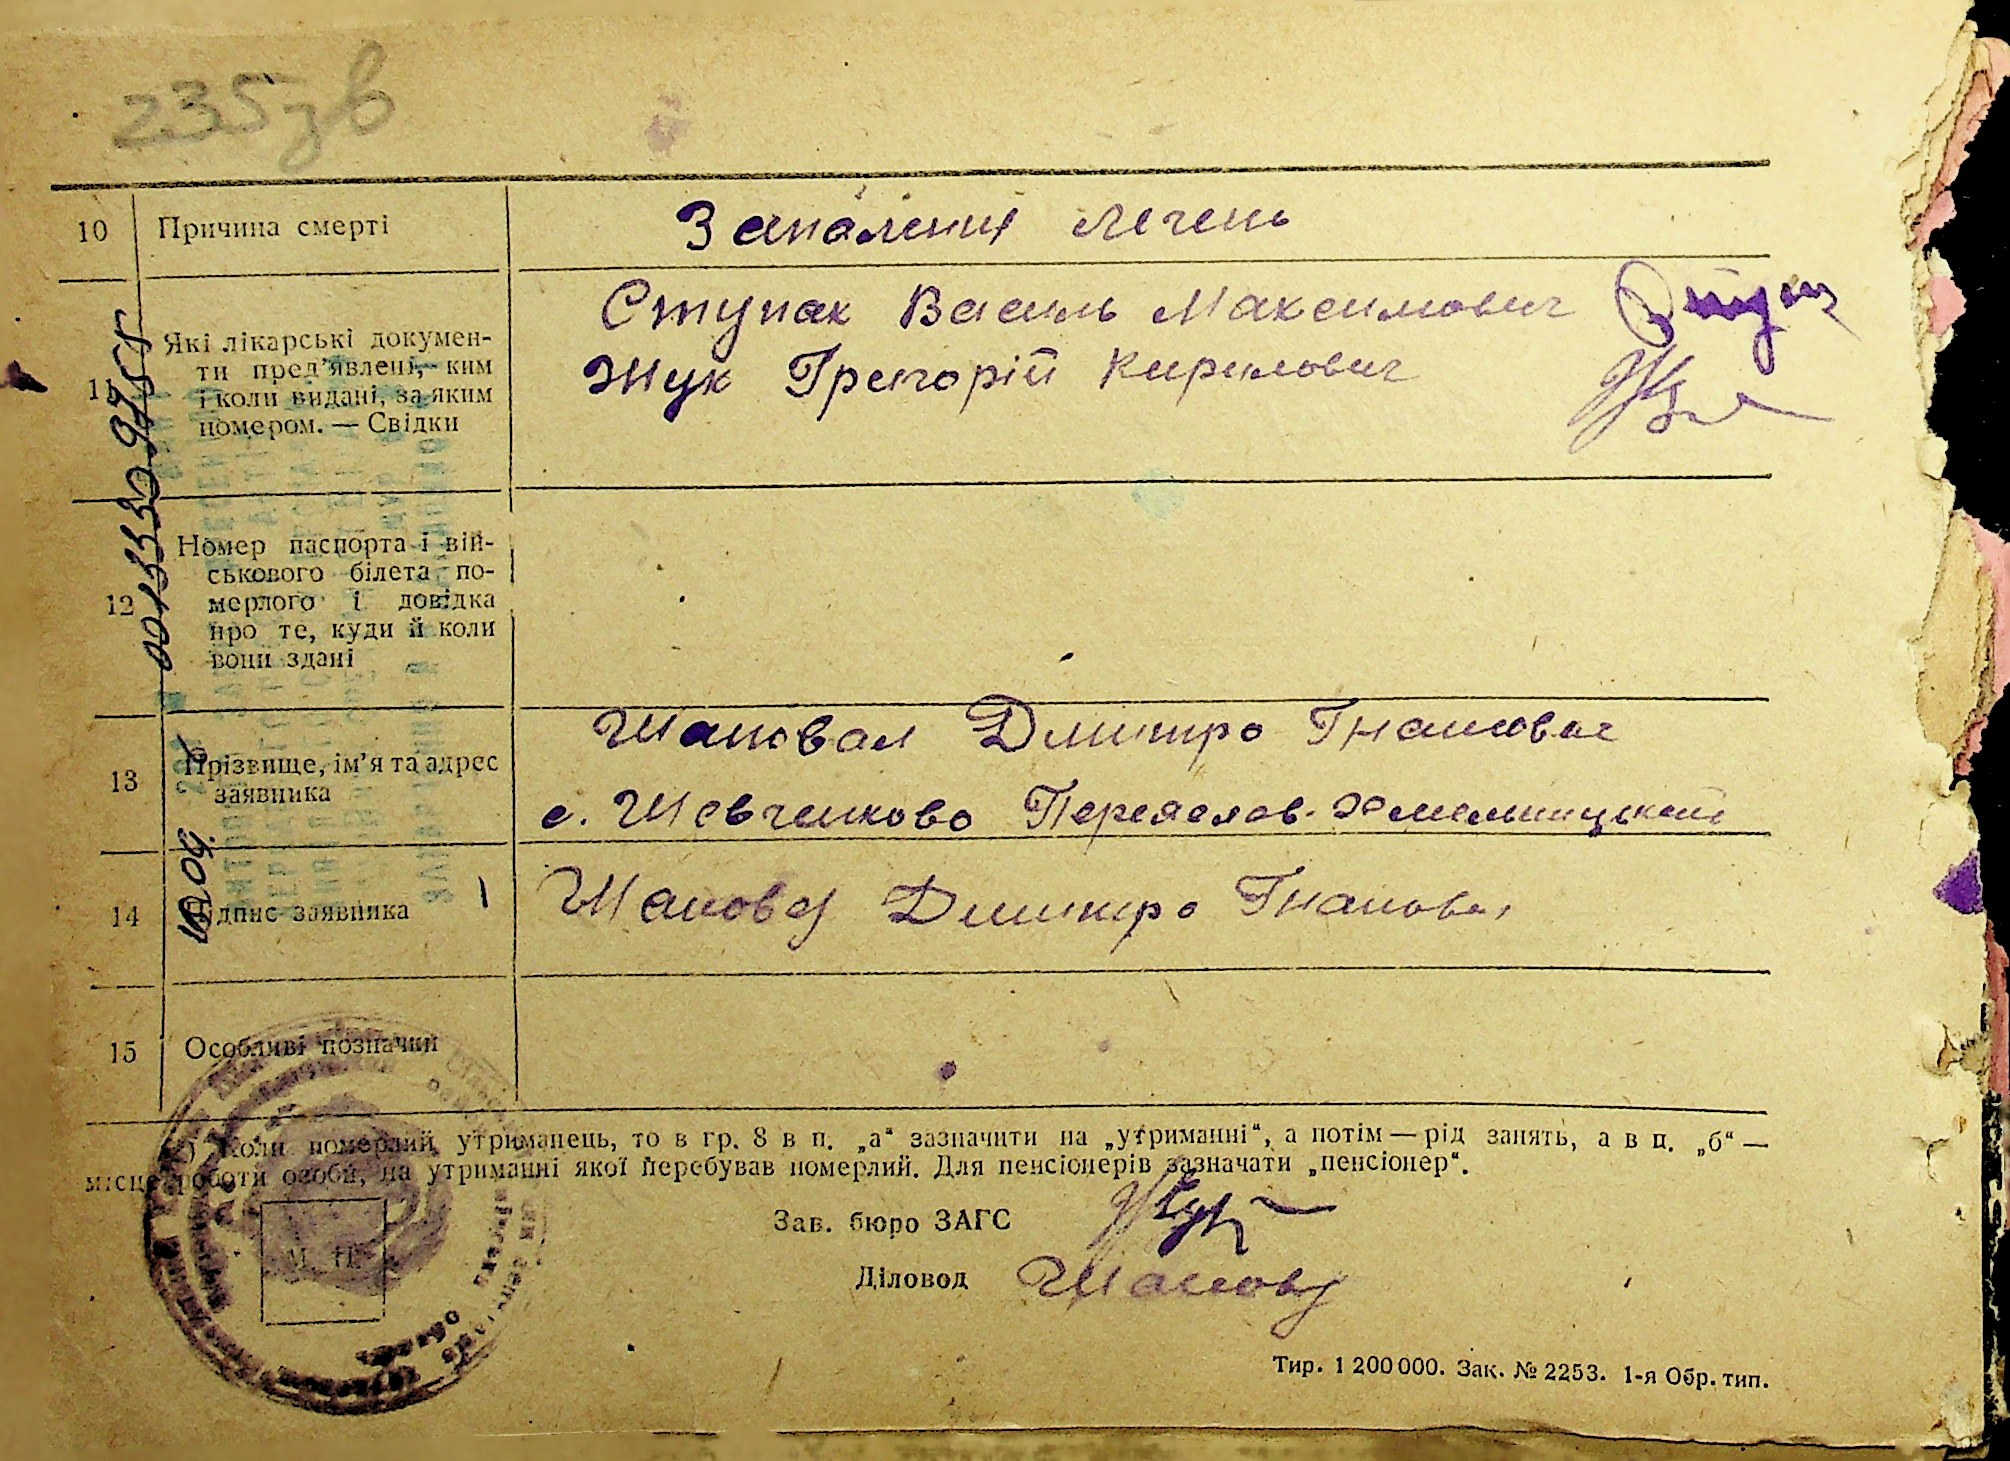 235зв
10 Причина смерті Запалення легень
11 Які лікарські докумен-
ти пред'явлені, ким
і коли видані, за яким
номером. — Свідки
Ступак Василь Максимович
Жук Григорій Кирилович
12 Номер паспорта і вій-
ськового білета по-
мерлого і довідка
про те, куди й коли
вони здані
13 Прізвище, ім'я та адрес
заявника
Шаповал Дмитро Гнатович
с. Шевченково Переяслав-Хмельницький
14 Підпис заявника Шаповал Дмитро Гнатович
15 Особливі позначки
) Коли померлий утриманець, то в гр. 8 в п. „а“ зазначити на „утриманні“, а потім — рід занять, а в п. „б“ —
місце роботи особи, на утриманні якої перебував померлий. Для пенсіонерів зазначати „пенсіонер“.
Зав. бюро ЗАГС Жук
Діловод Шаповал
М. П.
Тир. 1 200 000. Зак. № 2253. 1-я Обр. тип.